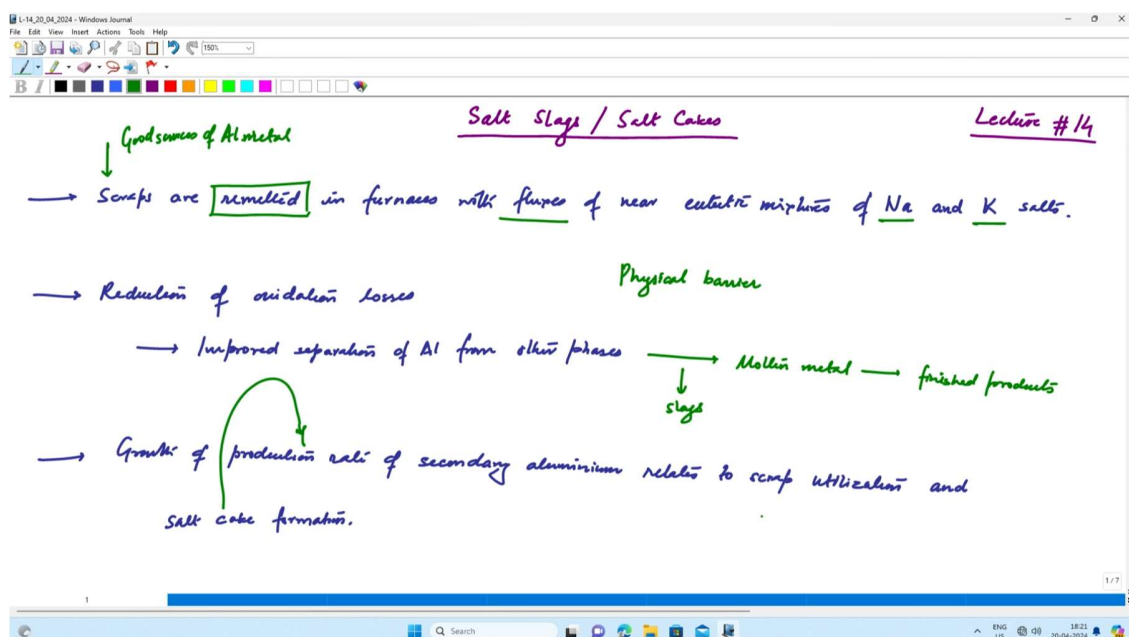 L-14_20_04_2024 - Windows Journal
File Edit View Insert Actions Tools Help
150%
B I
Salt Slags / Salt Cakes
Lecture # 14
Good sources of Al metal
→ Scraps are remelted in furnaces with fluxes of near eutectic mixtures of Na and K salts.
→ Reduction of oxidation losses
Physical barrier
→ Improved separation of Al from other phases → Molten metal — finished products
slags
→ Growth of production rate of secondary aluminium relates to scrap utilization and
salt cake formation.
1 / 7
1
Search
ENG
US
18:21
20-04-2024